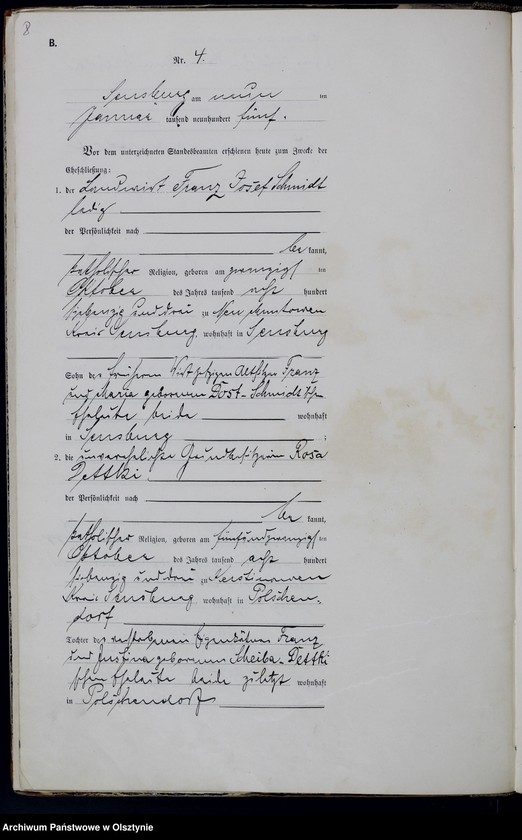 8
B.
Nr. 4.
Sensburg am neun ten
Januar tausend neunhundert fünf.
Vor dem unterzeichneten Standesbeamten erschienen heute zum Zwecke der
Eheschließung:
1. der Landwirt Franz Josef Schmidt
ledig
der Persönlichkeit nach
be kannt,
katholischer Religion, geboren am zwanzigs ten
Oktober des Jahres tausend acht hundert
siebenzig und drei zu Neu
Kreis Sensburg wohnhaft in Sensburg
Sohn des früheren Wirt jetzigen Altsitzer Franz
und Maria geborenen Dost - Schmidt'schen
Eheleute beide wohnhaft
in Sensburg ;
2. die unverehelichte Grundbesitzerin Rosa
Dettki
der Persönlichkeit nach
be kannt,
katholischer Religion, geboren am fünfundzwanzigs ten
Oktober des Jahres tausend acht hundert
siebenzig und drei zu
Kreis Sensburg wohnhaft in Polschen-
dorf
Tochter des verstorbenen Eigenkätner Franz
und Justina geborenen Scheiba - Dettki
schen Eheleute beide zuletzt wohnhaft
in Polschendorf
Archiwum Państwowe w Olsztynie